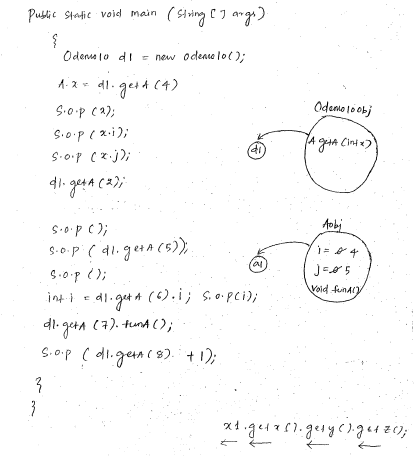 Public static void main (String [ ] args)
{
Odemo10 d1 = new odemo10();
A. x = d1. getA (4)
S.O.P (x);
S.O.P (x.i);
S.O.P (x.j);
d1. getA (2);
S.O.P ();
S.O.P ( d1. getA (5));
S.O.P ();
int i = d1. getA (6). i; S.O.P(i);
d1. getA (7). funA();
S.O.P ( d1. getA (8). +1);
}
}
Odemo10obj
A getA (int x)
d1
Aobj
i = 0 4
j = 0 5
void funA()
a1
x1. getx (). gety (). getz ();